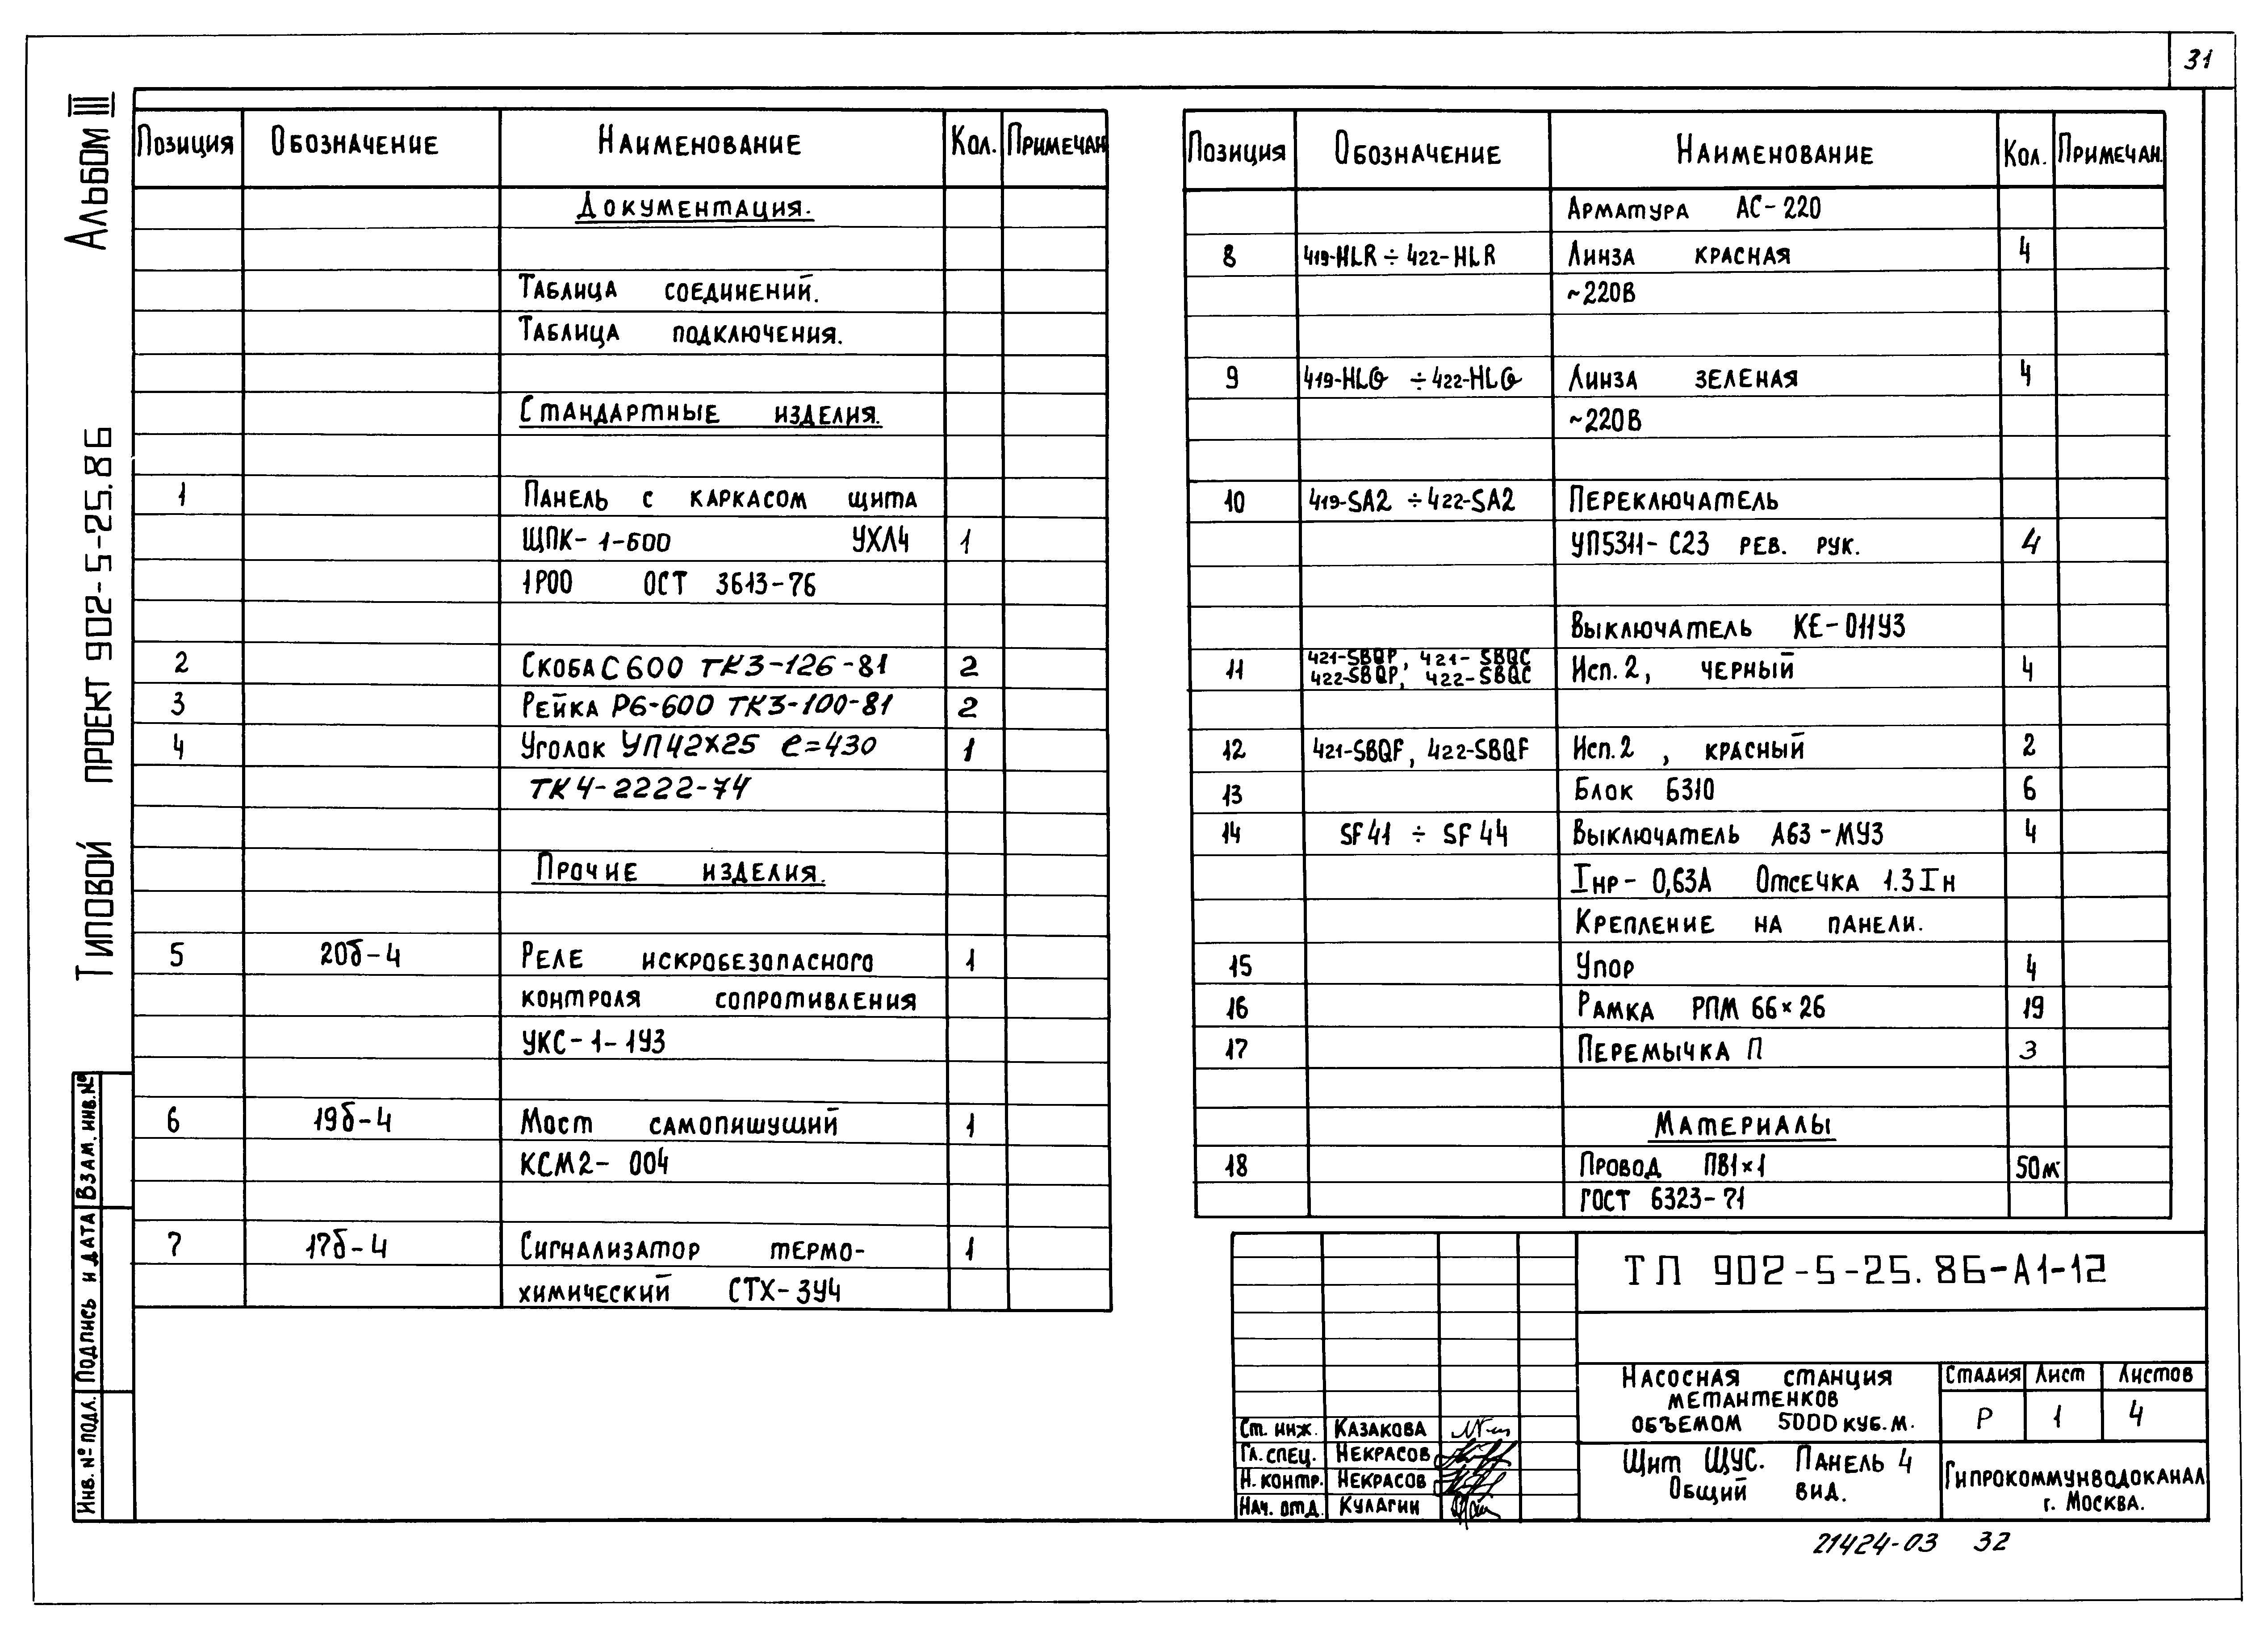 31
Альбом III
Типовой проект 902-5-25.86
Позиция Обозначение Наименование Кол. Примечан
Документация.
Таблица соединений.
Таблица подключения.
Стандартные изделия.
1 Панель с каркасом щита
ЩПК-1-600 УХЛ4 1
1Р00 ОСТ 3613-76
2 Скоба С600 ТК3-126-81 2
3 Рейка Р6-600 ТК3-100-81 2
4 Уголок УП42×25 ℓ=430 1
ТК4-2222-74
Прочие изделия.
5 20б-4 Реле искробезопасного 1
контроля сопротивления
УКС-1-1У3
6 19б-4 Мост самопишущий 1
КСМ2-004
7 17б-4 Сигнализатор термо- 1
химический СТХ-3У4
Позиция Обозначение Наименование Кол. Примечан.
Арматура АС-220
8 419-HLR ÷ 422-HLR Линза красная 4
~220В
9 419-HLG ÷ 422-HLG Линза зеленая 4
~220В
10 419-SA2 ÷ 422-SA2 Переключатель
УП5311-С23 рев. рук. 4
Выключатель КЕ-011У3
421-SBQP, 421-SBQC
11 422-SBQP, 422-SBQC Исп.2, черный 4
12 421-SBQF, 422-SBQF Исп.2, красный 2
13 Блок Б310 6
14 SF41 ÷ SF44 Выключатель А63-МУ3 4
Iнр- 0,63А Отсечка 1.3Iн
Крепление на панели.
15 Упор 4
16 Рамка РПМ 66×26 19
17 Перемычка П 3
Материалы
18 Провод ПВ1×1 50м
ГОСТ 6323-71
ТП 902-5-25.86-А1-12
Насосная станция
метантенков
объемом 5000 куб.м.
Стадия Лист Листов
Р 1 4
Щит ЩУС. Панель 4
Общий вид.
Гипрокоммунводоканал
г. Москва.
Ст. инж. Казакова
Гл. спец. Некрасов
Н. контр. Некрасов
Нач. отд. Кулагин
Инв. № подл. Подпись и дата Взам. инв. №
21424-03 32